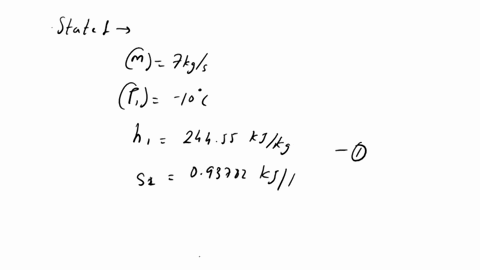 State 1 →
(ṁ) = 7kg/s
(T₁) = -10°C
h₁ = 244.55 KJ/kg
— ①
s₁ = 0.93782 KJ/